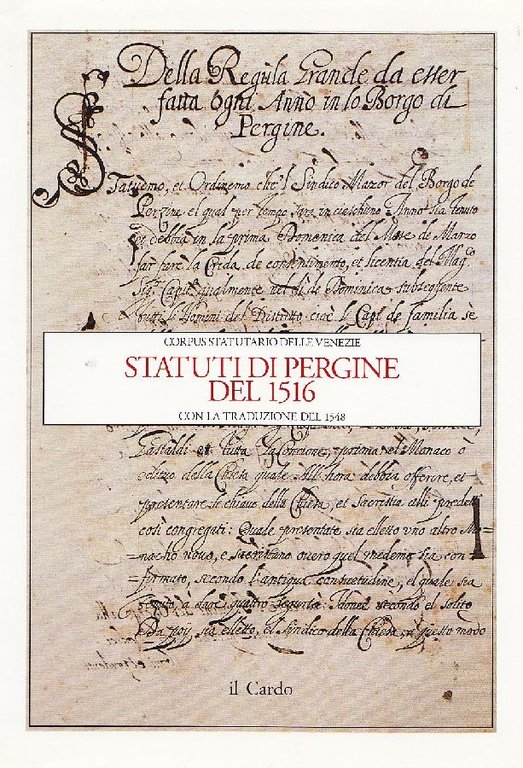 Della Regula Grande da esser
fatta ogni Anno in lo Borgo di
Pergine.
Statuemo, et Ordinemo che'l Sindico Mazor del Borgo de
Perzine el qual per tempo sara in ciaschuno Anno sia tenuto
et debba in la prima Domenica del Mese de Marzo
far fare la Crida, de consentimento, et licentia del Mag.co
Sig.r Capit. qualmente nel di de Dominica subsequente
tutti li Homini del Distretto cioè li Capi de familia se
CORPUS STATUTARIO DELLE VENEZIE
STATUTI DI PERGINE
DEL 1516
CON LA TRADUZIONE DEL 1548
Gastaldi et tutta la Concione, prima el Monaco ò
edituo della Chiesa quale All'hora debbia offerire, et
presentare le chiave della Chiesa, et Sacristia alli predetti
così congregati: Quale presentate sia elletto uno altro Mo=
=nacho novo, e overo quel medemo sia con=
=formato, secondo l'antiqua consuetudine, el quale sia
tenuto, à dare quattro segurtà Idonee secondo el solito
Da poy sia elletto, el Sindico della Chiesa, a questo modo
il Cardo